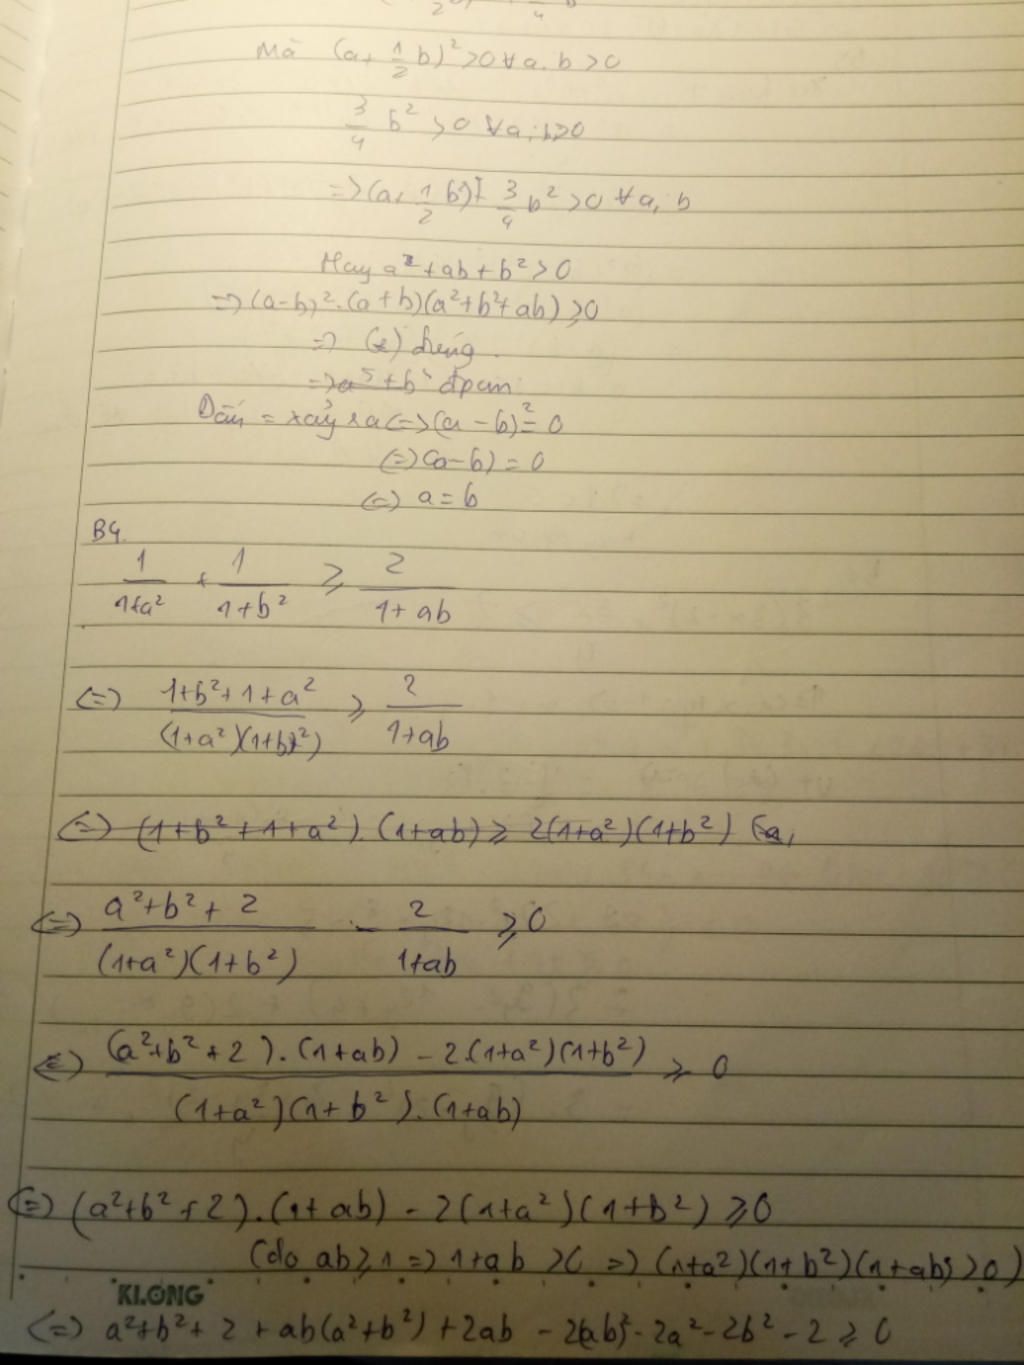 Mà (a + 1/2 b)² > 0 ∀ a, b > 0
3/4 b² > 0 ∀ a, b > 0
=> (a + 1/2 b)² + 3/4 b² > 0 ∀ a, b
Hay a² + ab + b² > 0
=> (a-b)².(a+b)(a²+b²+ab) ≥ 0
=> (*) đúng.
=> đpcm
Dấu = xảy ra <=> (a-b)² = 0
<=> (a-b) = 0
<=> a = b
B4.
1/(1+a²) + 1/(1+b²) ≥ 2/(1+ab)
<=> (1+b²+1+a²)/((1+a²)(1+b²)) ≥ 2/(1+ab)
<=> (1+b²+1+a²).(1+ab) ≥ 2(1+a²)(1+b²)
<=> (a²+b²+2)/((1+a²)(1+b²)) - 2/(1+ab) ≥ 0
<=> ((a²+b²+2).(1+ab) - 2.(1+a²)(1+b²))/((1+a²)(1+b²).(1+ab)) ≥ 0
<=> (a²+b²+2).(1+ab) - 2(1+a²)(1+b²) ≥ 0
(do ab ≥ 1 => 1+ab > 0 => (1+a²)(1+b²)(1+ab) > 0)
KLONG
<=> a²+b²+2+ab(a²+b²)+2ab - 2(ab)² - 2a² - 2b² - 2 ≥ 0